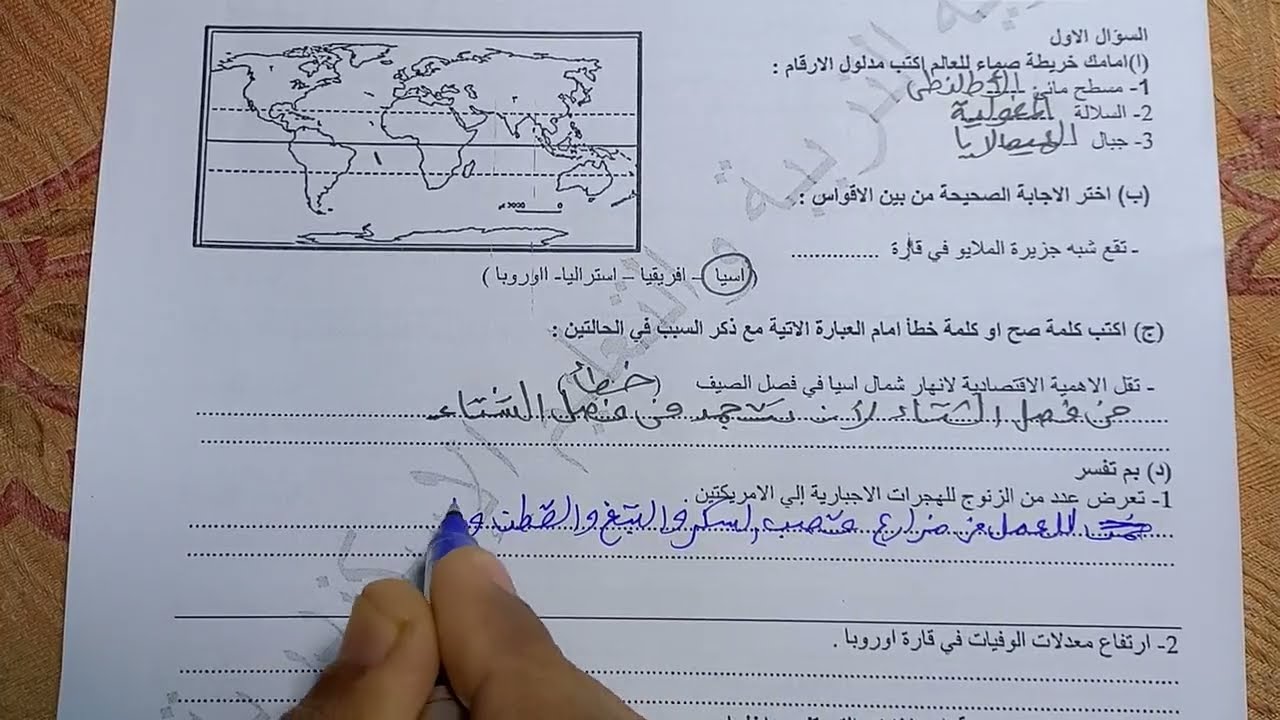 السؤال الاول
(ا) امامك خريطة صماء للعالم اكتب مدلول الارقام :
1- مسطح مائي الأطلنطى
2- السلالة المغولية
3- جبال الهيمالايا
(ب) اختر الاجابة الصحيحة من بين الاقواس :
- تقع شبه جزيرة الملايو في قارة ...............
( اسيا – افريقيا – استراليا- ااوروبا )
(ج) اكتب كلمة صح او كلمة خطأ امام العبارة الاتية مع ذكر السبب في الحالتين :
- تقل الاهمية الاقتصادية لانهار شمال اسيا في فصل الصيف (خطأ)
فى فصل الشتاء لأن تتجمد فى فصل الشتاء
(د) بم تفسر
1- تعرض عدد من الزنوج للهجرات الاجبارية إلي الامريكتين .
للعمل فى مزارع قصب السكر والتبغ والقطن و
2- ارتفاع معدلات الوفيات في قارة اوروبا .